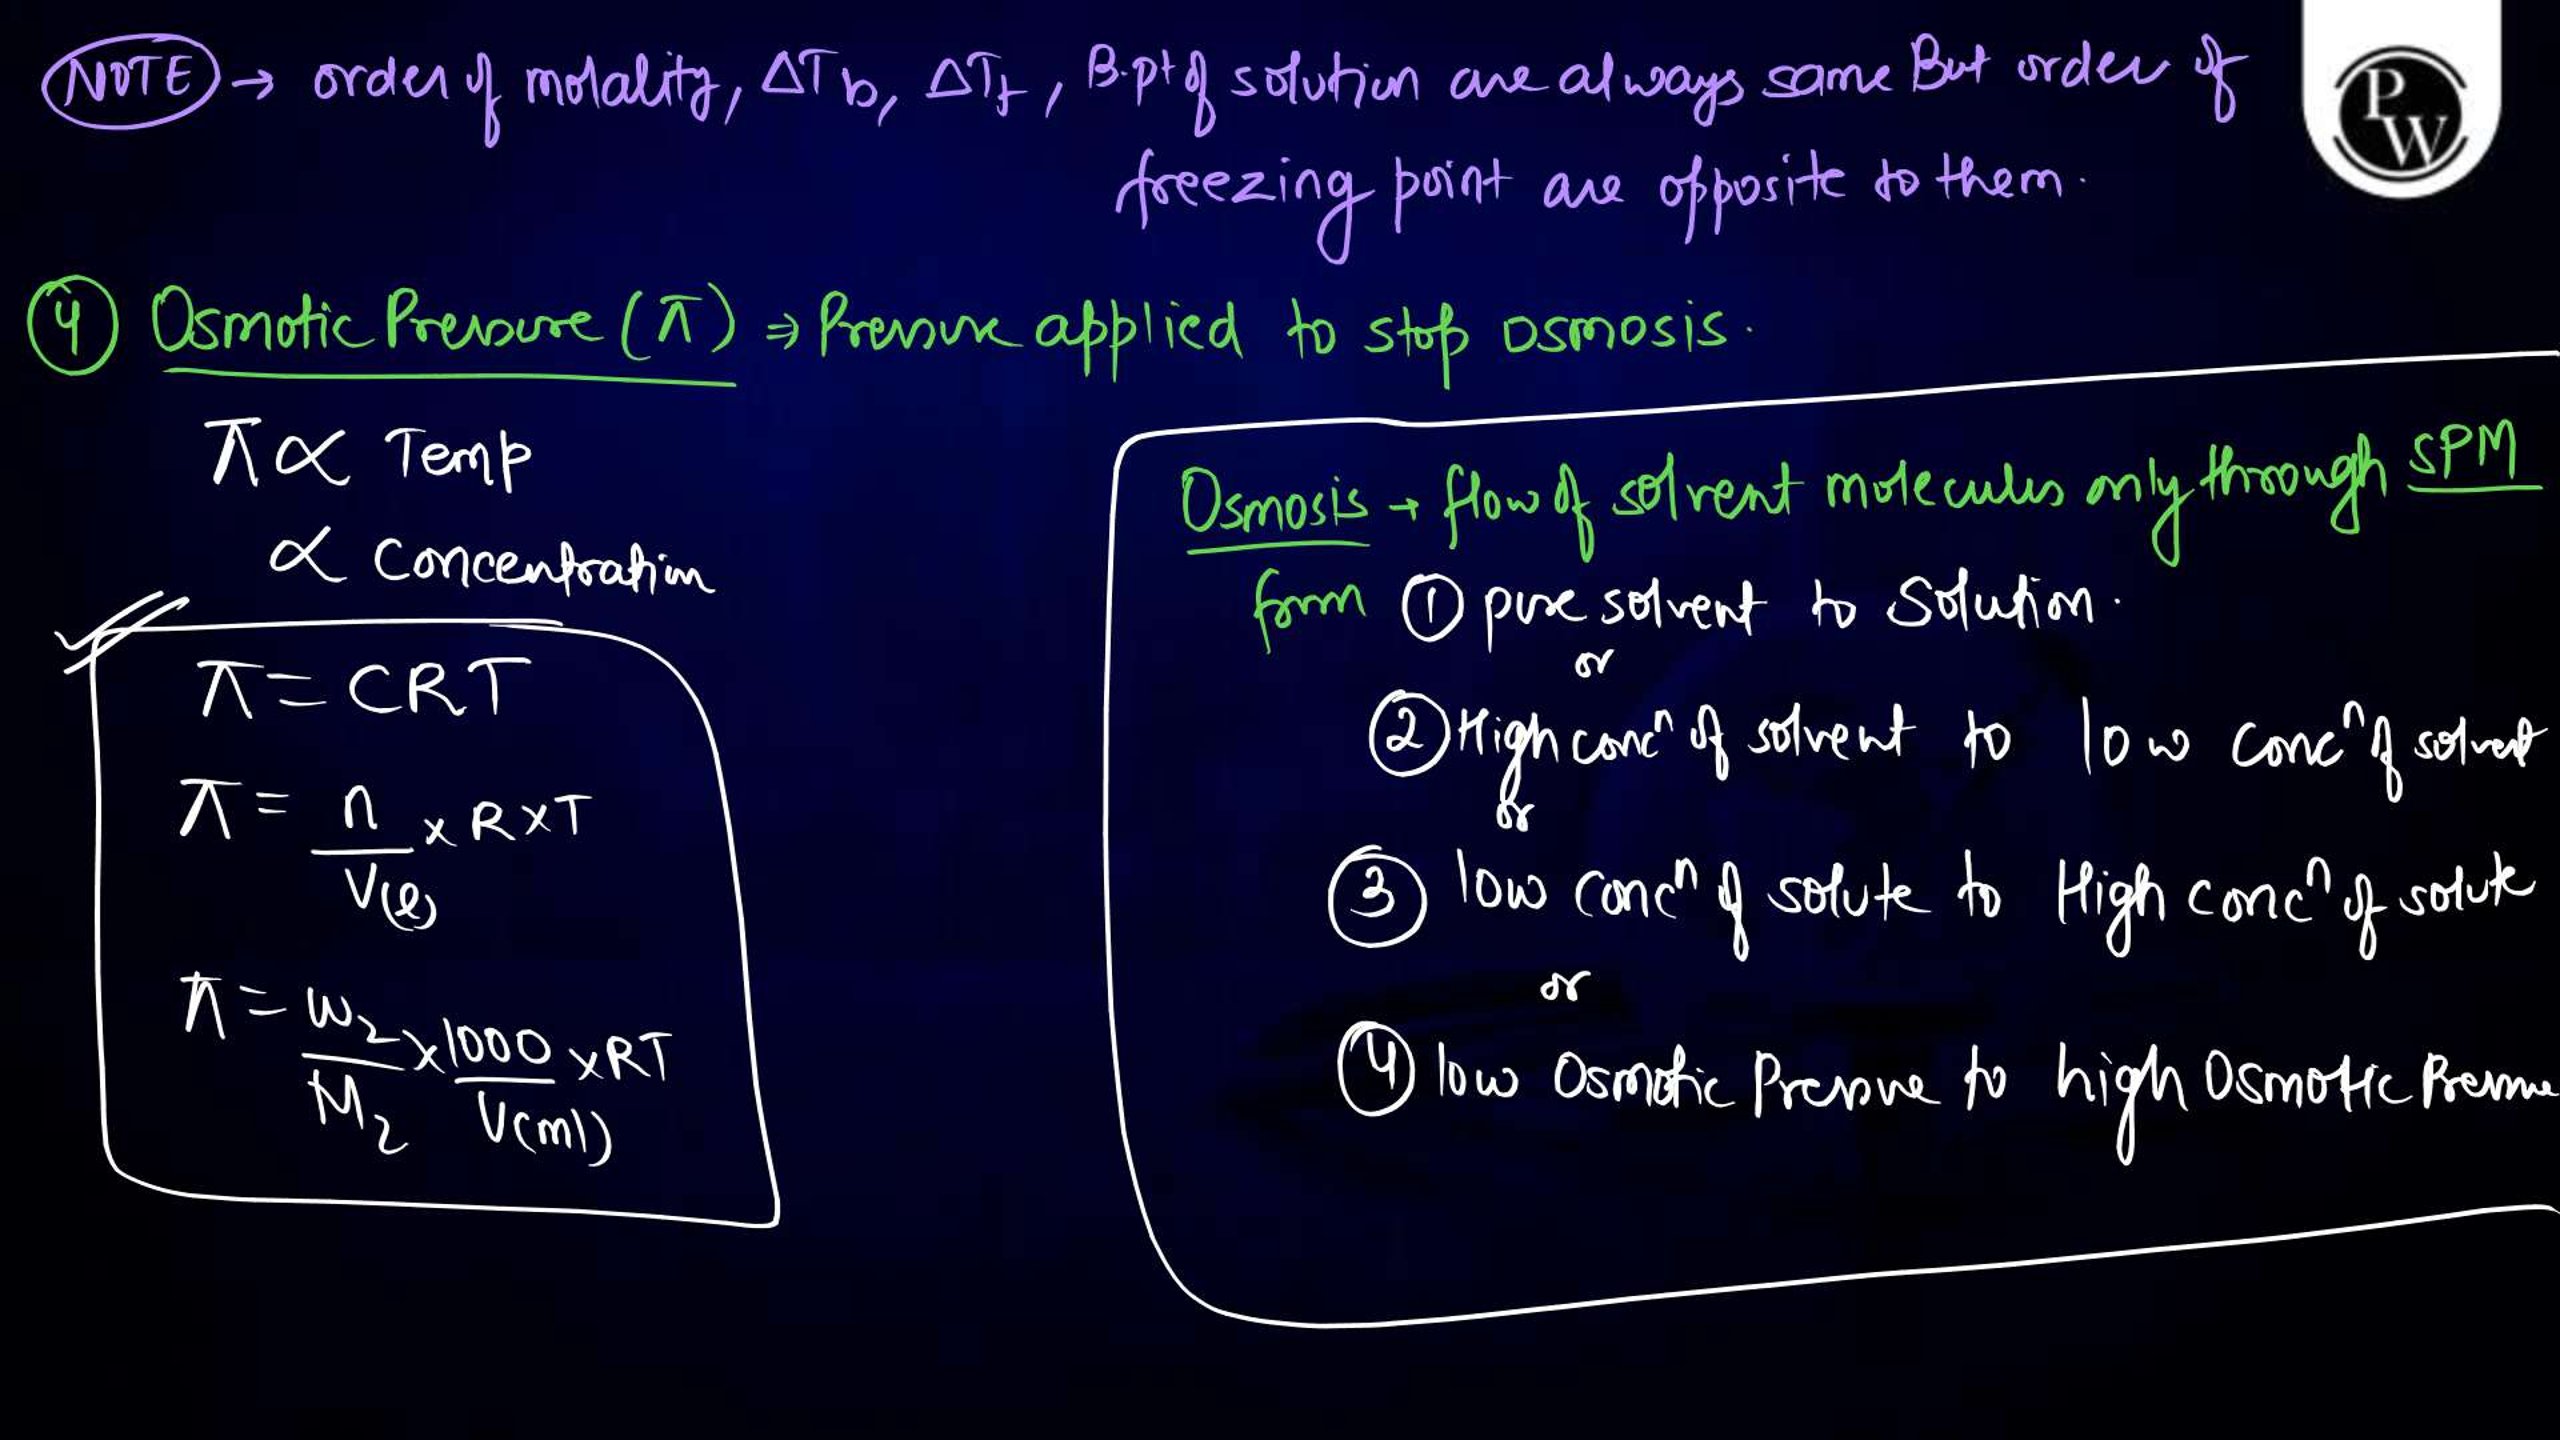 NOTE → order of molality, ΔTb, ΔTf, B.pt of solution are always same But order of
freezing point are opposite to them.
PW
④ Osmotic Pressure (π) ⇒ Pressure applied to stop osmosis.
π ∝ Temp
∝ Concentration
π = CRT
π = n/V(l) × R × T
π = w₂/M₂ × 1000/V(ml) × RT
Osmosis → flow of solvent molecules only through SPM
form ① pure solvent to Solution.
or
② High concⁿ of solvent to low concⁿ of solvent
or
③ low concⁿ of solute to High concⁿ of solute
or
④ low Osmotic Pressure to high Osmotic Pressure